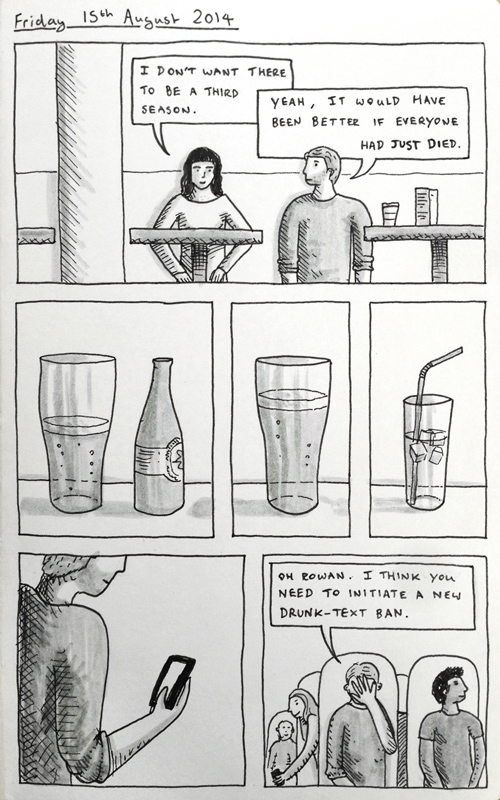 Friday 15th August 2014
I DON'T WANT THERE
TO BE A THIRD
SEASON.
YEAH, IT WOULD HAVE
BEEN BETTER IF EVERYONE
HAD JUST DIED.
OH ROWAN. I THINK YOU
NEED TO INITIATE A NEW
DRUNK-TEXT BAN.